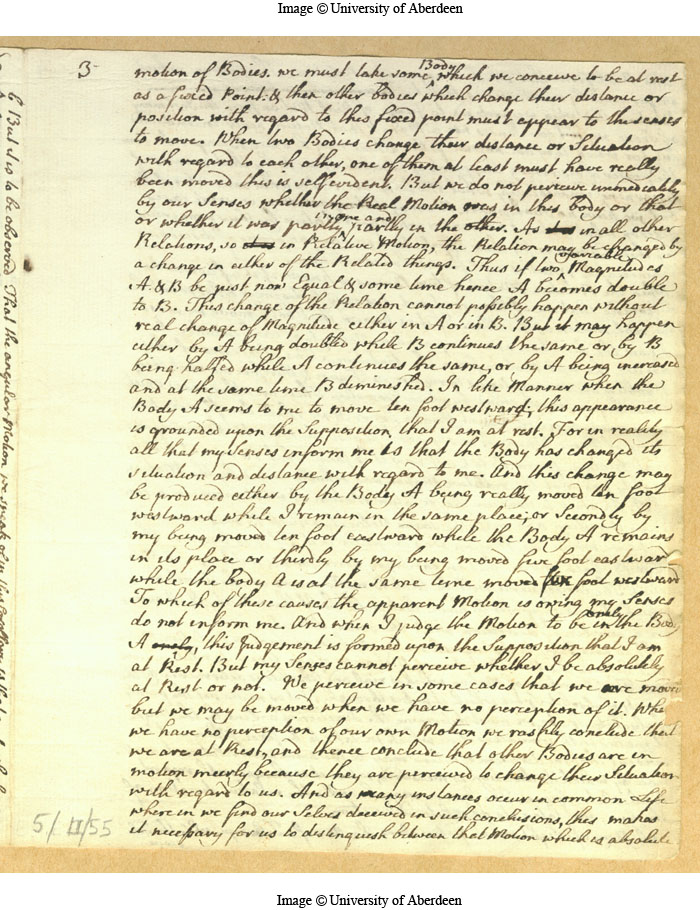 Image © University of Aberdeen
3
motion of Bodies. we must take some Body which we conceive to be at rest
as a fixed Point: & then other bodies which change their distance or
position with regard to this fixed point must appear to the senses
to move. When two Bodies change their distance or Situation
with regard to each other, one of them at least must have really
been moved this is self evident. But we do not perceive immediately
by our Senses whether the Real Motion was in this body or that
or whether it was partly in one and partly in the other. As in all other
Relations, so in Relative Motion, the Relation may be changed by
a change in either of the Related things. Thus if two variable Magnitudes
A. & B be just now Equal & some time hence A becomes double
to B. This change of the Relation cannot possibly happen without
real change of Magnitude either in A or in B. But it may happen
either by A being doubled while B continues the same or by B
being halfed while A continues the same, or by A being increased
and at the same time B diminished. In like Manner when the
Body A seems to me to move ten foot westward, this appearance
is grounded upon the Supposition that I am at rest. For in reality
all that my Senses inform me is that the Body has changed its
situation and distance with regard to me. And this change may
be produced either by the Body A being really moved ten foot
westward while I remain in the same place, or Secondly by
my being moved ten foot eastward while the Body A remains
in its place or thirdly by my being moved five foot eastwar
while the body A is at the same time moved foot westward
To which of these causes the apparent Motion is owing my Senses
do not inform me. And when I judge the Motion to be only in the Body
A only, this Judgement is formed upon the Supposition that I am
at Rest. But my Senses cannot perceive whether I be absolutely
at Rest or not. We perceive in some cases that we are move
but we may be moved when we have no perception of it. Whe
we have no perception of our own Motion we rashly conclude that
we are at Rest, and thence conclude that other Bodies are in
motion meerly because they are perceived to change their Situation
with regard to us. And as many instances occur in common Life
where in we find our Selves deceived in such conclusions, this makes
it necessary for us to distinguish between that Motion which is absolute
But it is to be observed That the angular Motion we speak of in
5/II/55
Image © University of Aberdeen